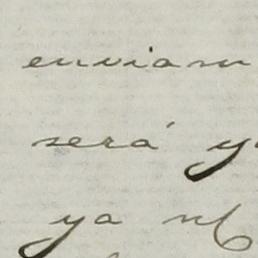 enviam
será y
ya n